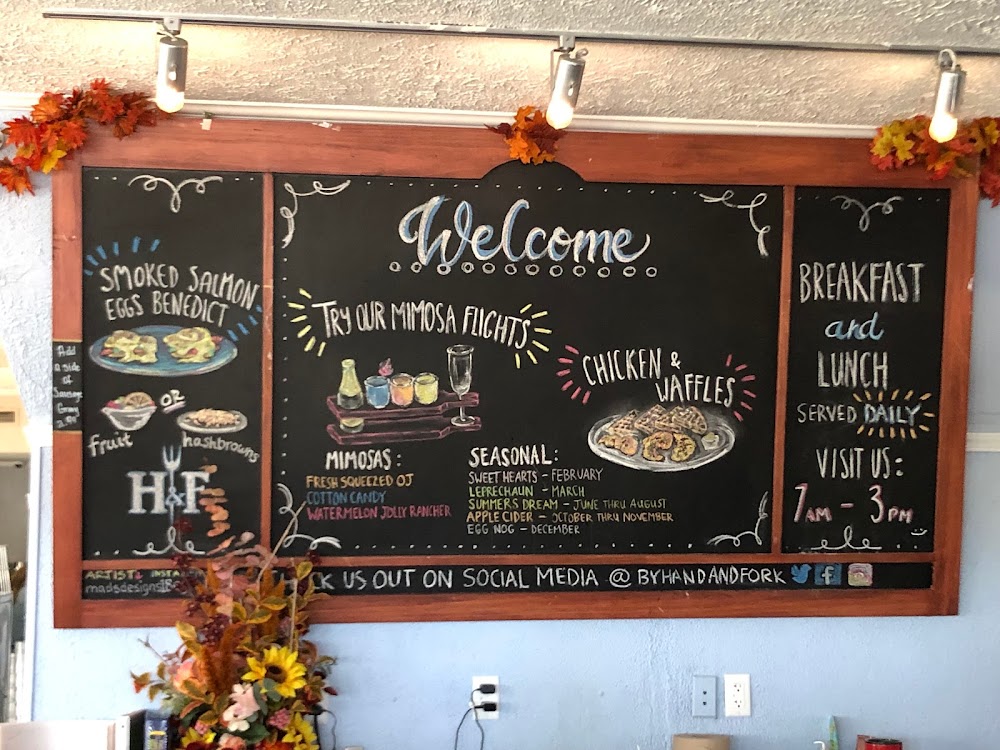 SMOKED SALMON
EGGS BENEDICT
Add
a side
of
Sausage
Gravy
OR
fruit
hashbrowns
H&F
Welcome
TRY OUR MIMOSA FLIGHTS
CHICKEN &
WAFFLES
MIMOSAS:
FRESH SQUEEZED OJ
COTTON CANDY
WATERMELON JOLLY RANCHER
SEASONAL:
SWEET HEARTS - FEBRUARY
LEPRECHAUN - MARCH
SUMMERS DREAM - JUNE THRU AUGUST
APPLE CIDER - OCTOBER THRU NOVEMBER
EGG NOG - DECEMBER
BREAKFAST
and
LUNCH
SERVED DAILY
VISIT US:
7AM - 3PM
ARTIST
US OUT ON SOCIAL MEDIA @ BYHANDANDFORK